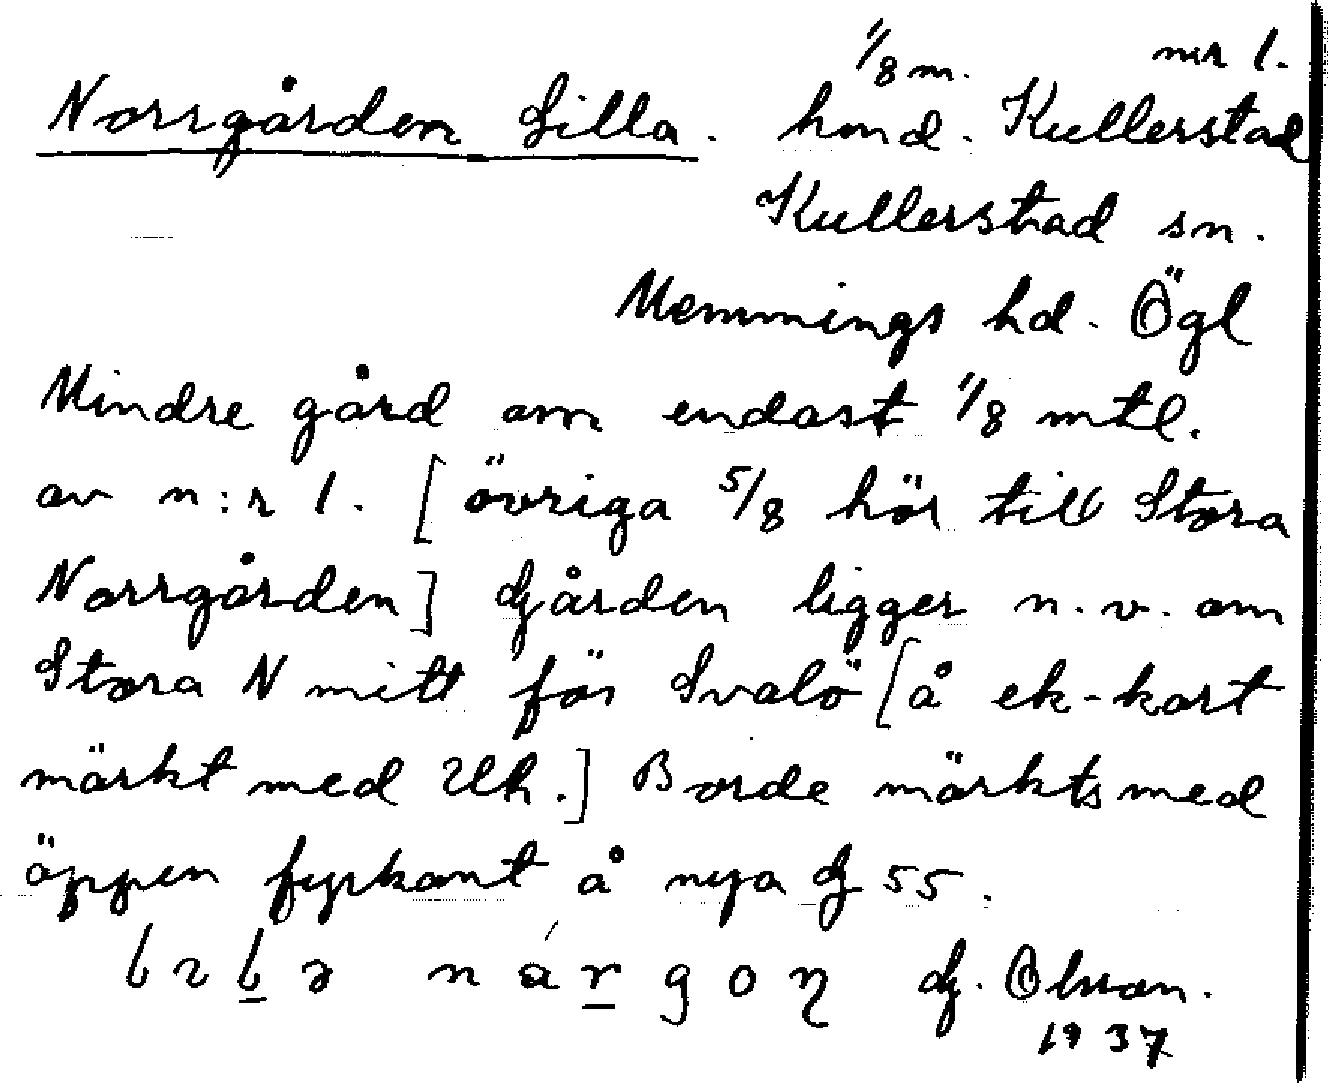 1/8 m. nr 1.
Norrgården Lilla. hmd. Kullerstad
Kullerstad sn.
Memmings hd. Ögl
Mindre gård om endast 1/8 mtl.
av n:r 1. [övriga 5/8 hör till Stora
Norrgården] Gården ligger n.v. om
Stora N mitt för Svalö [å ek-kart
märkt med Uh.] Borde märkts med
öppen fyrkant å nya G 55.
G. Olsson.
1937